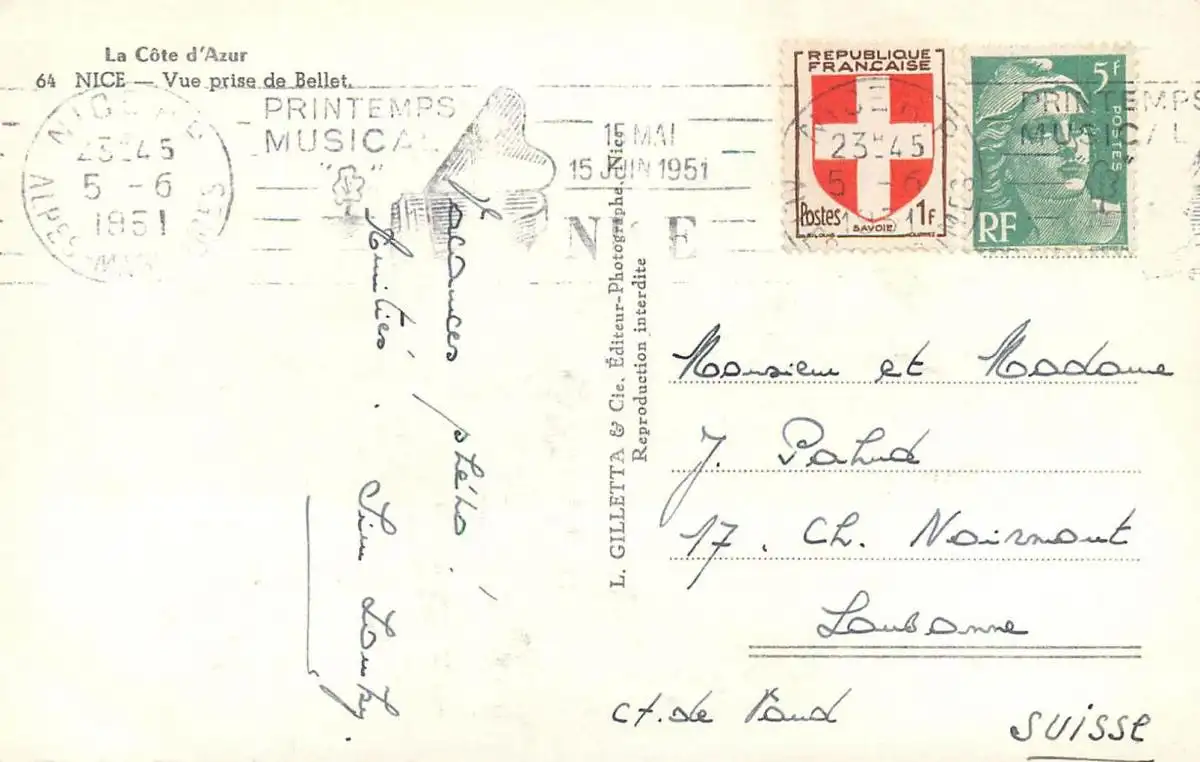 La Côte d'Azur
64 NICE — Vue prise de Bellet.
NICE
23H45
5 - 6
1951
ALPES MMES
PRINTEMPS
MUSICAL
15 MAI
15 JUIN 1951
NICE
REPUBLIQUE
FRANÇAISE
Postes 1F
SAVOIE
23H45
5 - 6
5F
POSTES
RF
PRINTEMPS
MUSICAL
vacances
Amitiés.
L. GILLETTA & Cie, Éditeur-Photographe, Nice
Reproduction interdite
Monsieur et Madame
J. Pahud
17. Ch. Noirmont
Lausanne
Ct. de Vaud
SUISSE